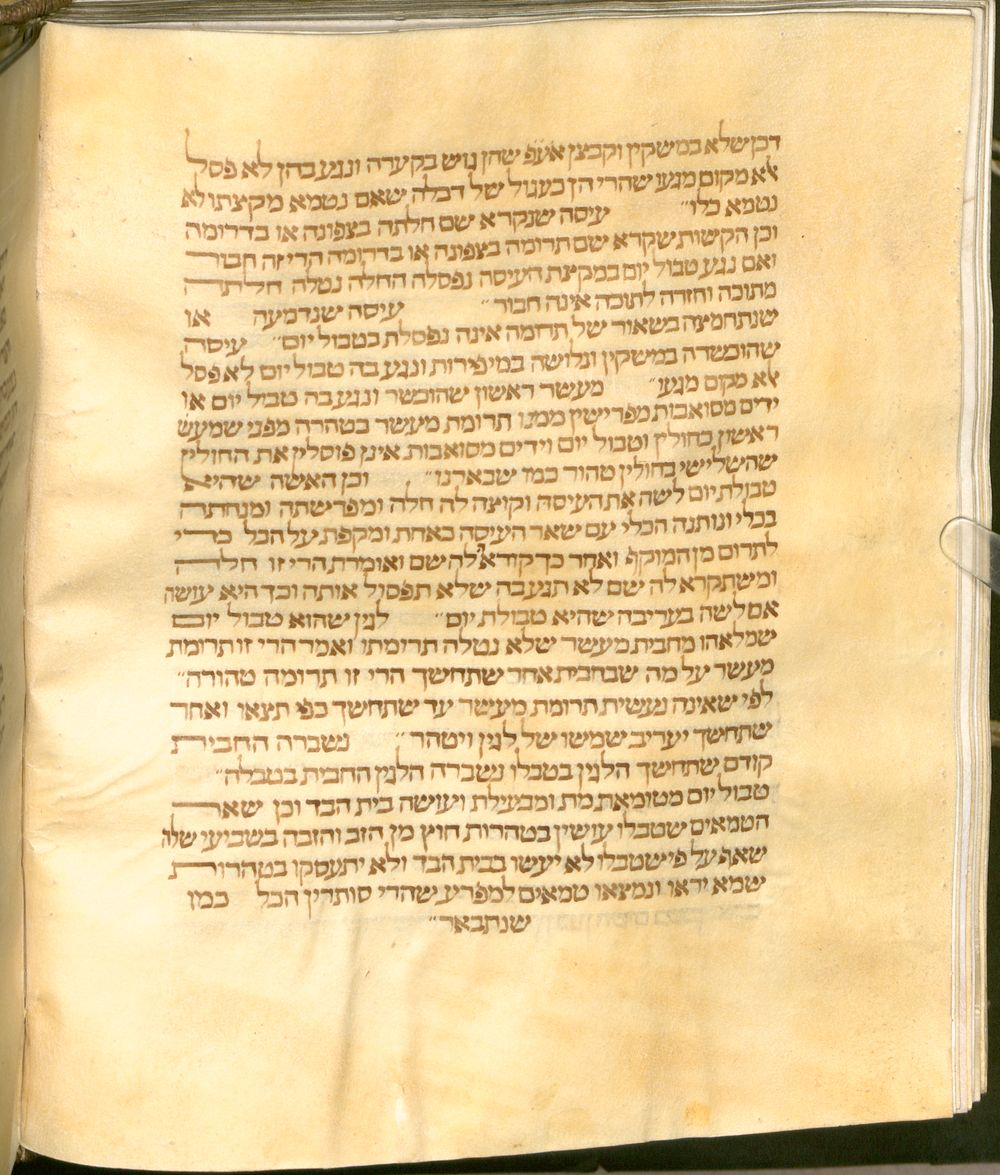 דכן שלא במשקין וקבצן אעפ שהן גוש בקערה ונגע בהן לא פסל
אלא מקום מגעו שהרי הן כעגול של דבלה שאם נטמא מקצתו לא
נטמא כלו״ עיסה שנקרא שם חלתה בצפונה או בדרומה
וכן הקשות שקרא שם תרומה בצפונה או בדרומה הרי זה חבור
ואם נגע טבול יום במקצת העיסה נפסלה החלה נטלה חלתה
מתוכה וחזרה לתוכה אינה חבור״ עיסה שנדמעה או
שנתחמצה בשאור של תרומה אינה נפסלת בטבול יום״ עיסה
שהוכשרה במשקין ונלושה במי פירות ונגע בה טבול יום לא פסל
אלא מקום מגעו״ מעשר ראשון שהוכשר ונגע בה טבול יום או
ידים מסואבות מפרישין ממנו תרומת מעשר בטהרה מפני שמעש
ראשון כחולין וטבול יום וידים מסואבות אינן פוסלין את החולין
שהשלישי בחולין טהור כמו שבארנו״ וכן האשה שהיא
טבולת יום לשה את העיסה וקוצה לה חלה ומפרישתה ומנחתה
בכלי ונותנה הכלי עם שאר העיסה באחת ומקפת על הכל כדי
לתרום מן המוקף ואחר כך קורא לה שם ואומרת הרי זו חלה
ומשתקרא לה שם לא תגע בה שלא תפסול אותה וכך היא עושה
אם לשה בעריבה שהיא טבולת יום״ לגין שהוא טבול יום
שמלאהו מחבית מעשר שלא נטלה תרומתו ואמר הרי זו תרומת
מעשר על מה שבחבית אחר שתחשך הרי זו תרומה טהורה״
לפי שאינה נעשית תרומת מעשר עד שתחשך כפי תנאו ואחר
שתחשך יעריב שמשו של לגין ויטהר״ נשברה החבית
קודם שתחשך הלגין בטבלו נשברה הלגין החבית בטבלה״
טבול יום מטומאת מת ומבעילת ועושה בית הבד וכן שאר
הטמאים שטבלו עושין בטהרות חוץ מן הזב והזבה בשביעי שלהן
שאף על פי שטבלו לא יעשו בבית הבד ולא יתעסקו בטהרות
שמא יראו ונמצאו טמאים למפרע שהרי סותרין הכל כמו
שנתבאר״